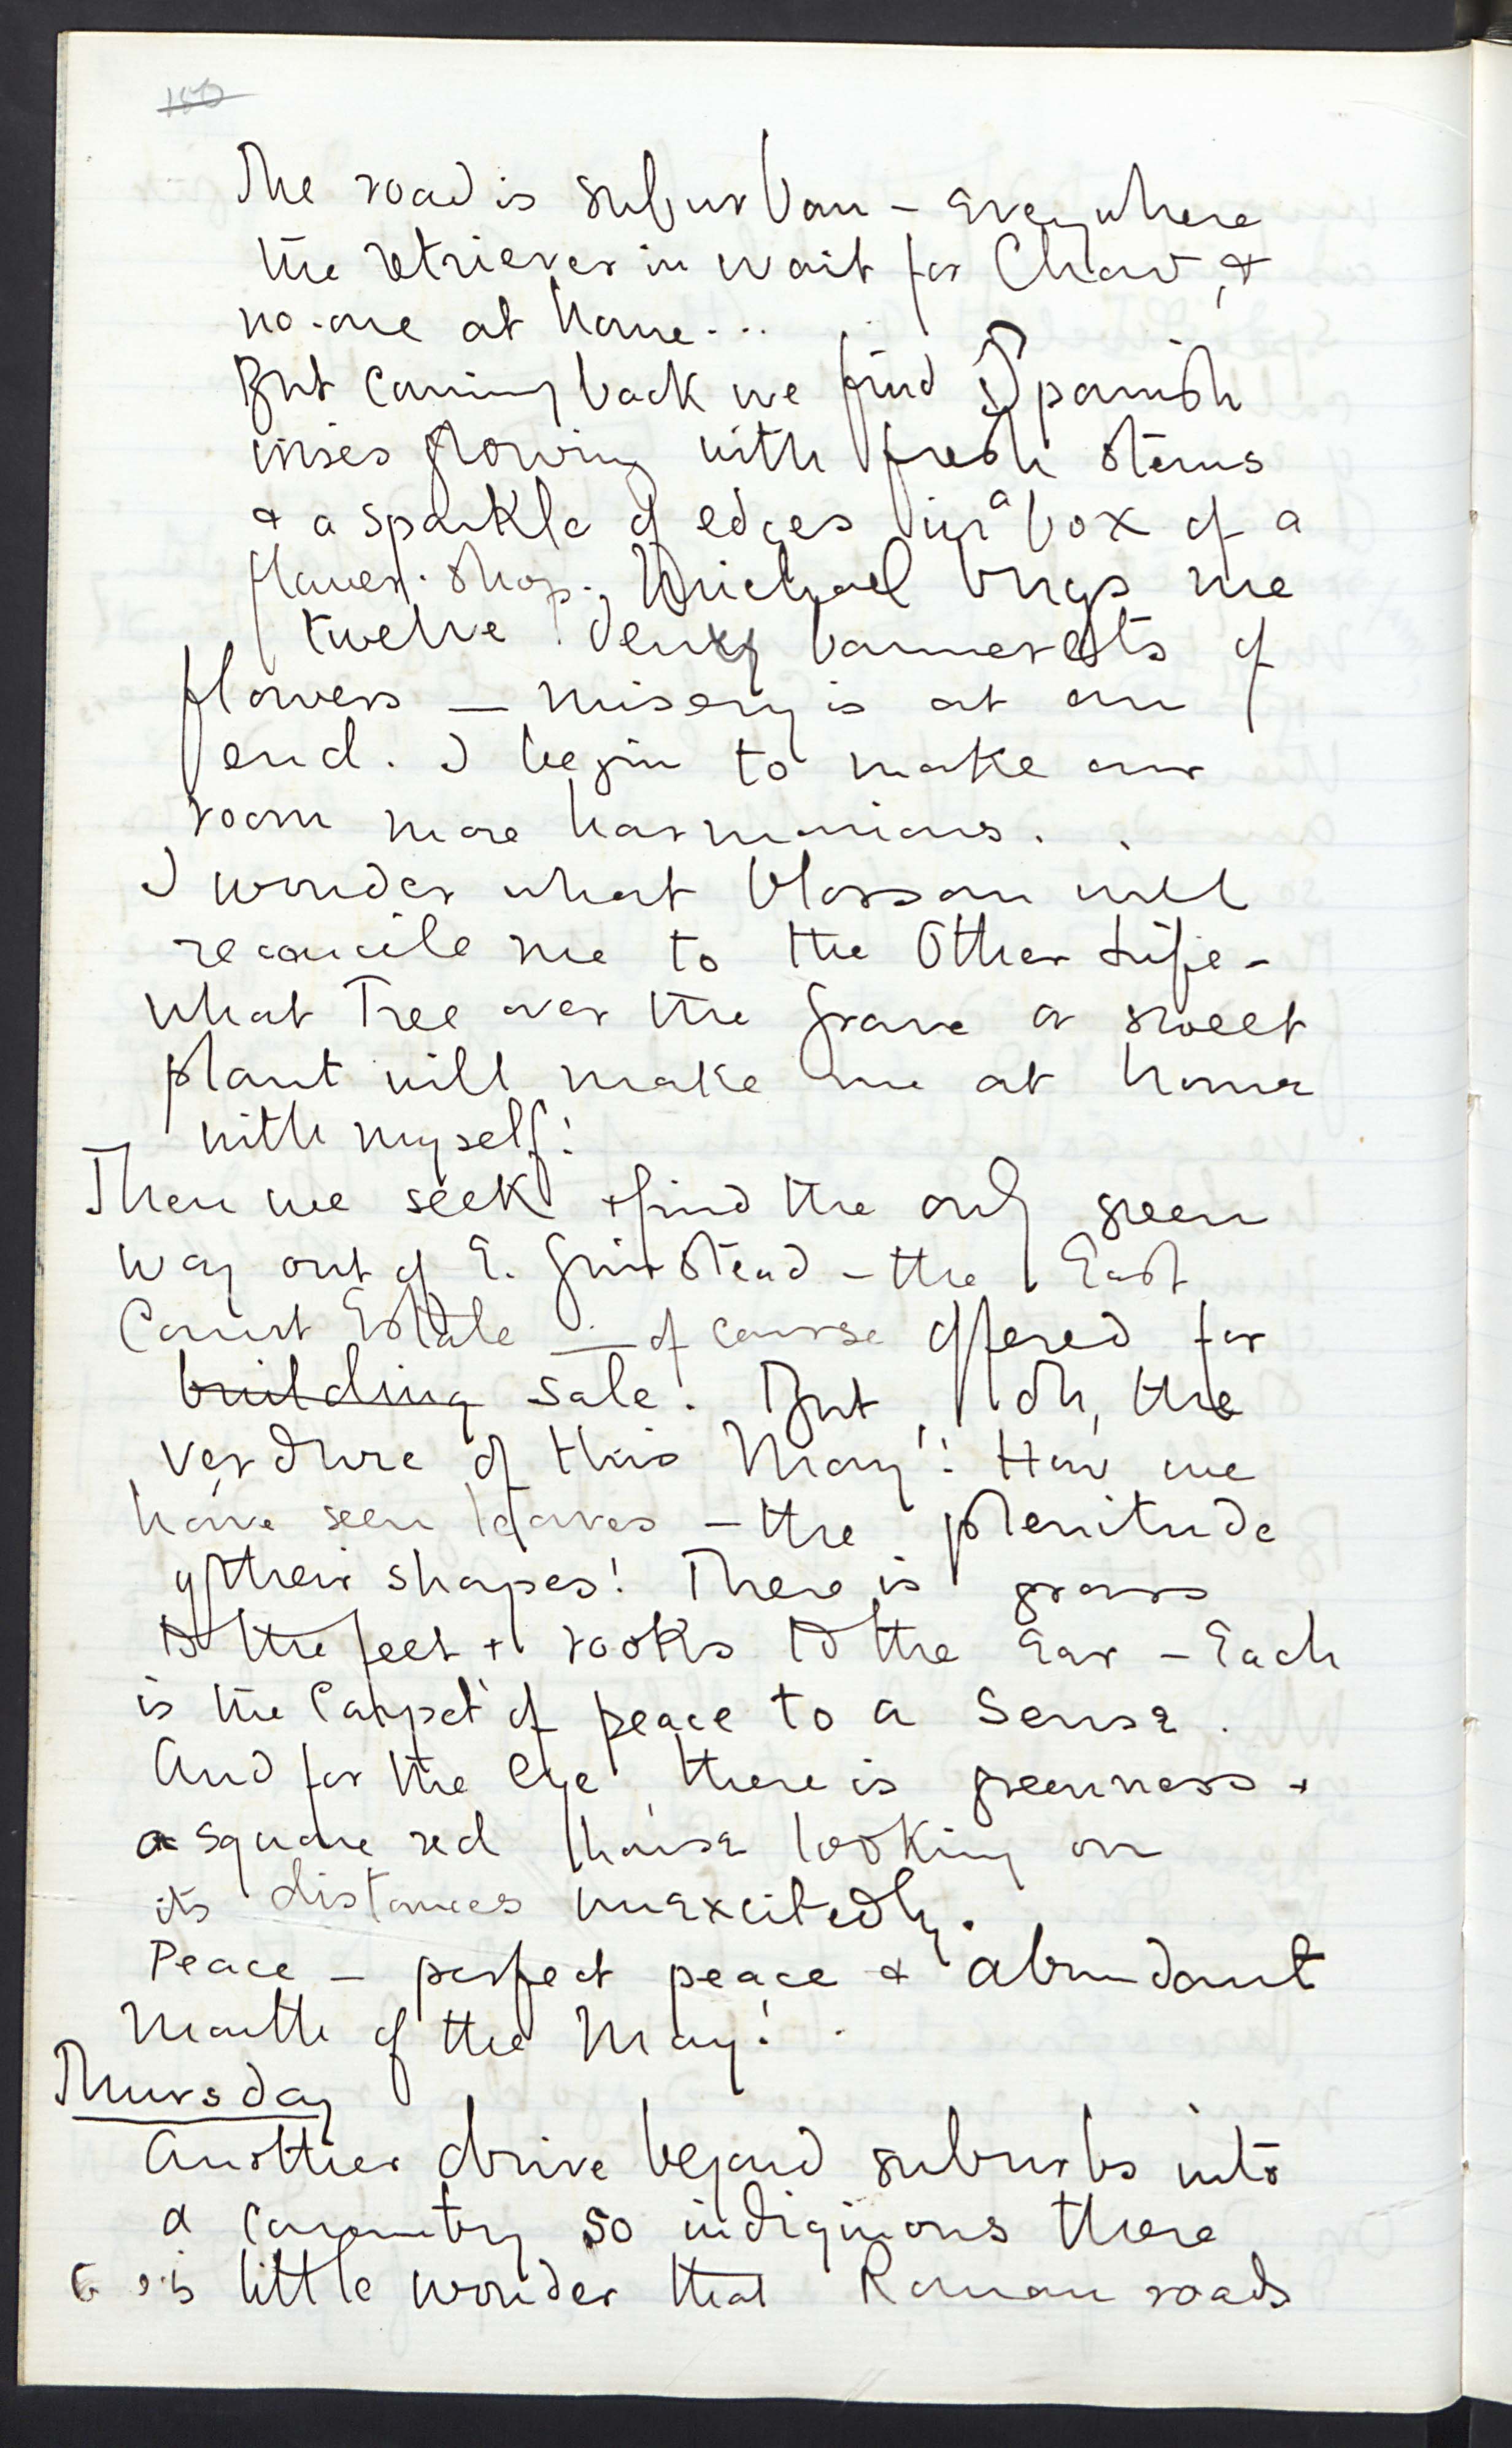 150
The road is suburban – Everywhere
the retriever in wait for Chow, &
no-one at home...
But coming back we find Spanish
irises glowing with fresh stems
& a sparkle of edges in a box of a
flower-shop. Michael buys me
twelve bannerets of
flowers — misery is at an
end. I begin to make our
room more harmonious.
I wonder what blossom will
reconcile me to the Other Life –
what Tree over the grave or sweet
plant will make me at home
with myself!
Then we seek & find the only green
way out of E. Grinstead – the East
Court Estate — of course offered for
building sale. But, oh, the
verdure of this May! How we
have seen leaves – the plenitude
of their shapes! There is grass
to the feet & rooks to the Ear – Each
is the Carpet of peace to a Sense.
And for the Eye there is greenness &
a square red house looking on
its distances unexcitedly.
Peace – perfect peace & abundant
Month of the May!
Thursday
Another drive beyond suburbs into
a country so indiginous there
is little wonder that Roman roads